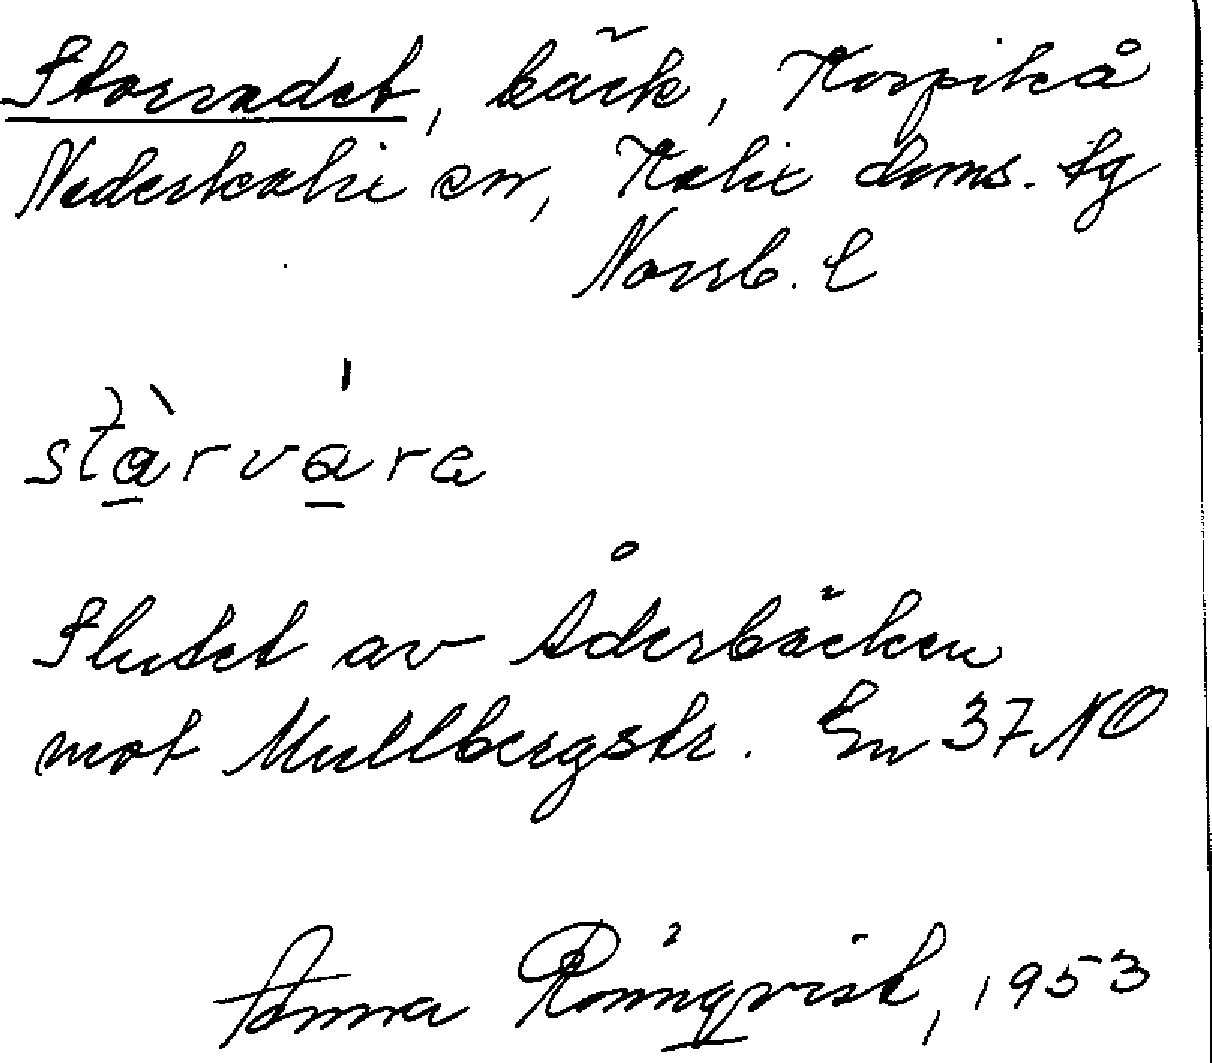 Storvadet, bäck, Korpikå
Nederkalix sn, Kalix doms. tg
Norrb. l
stàrvára
Slutet av Åderbäcken
mot Mullbergstr. En 37 NO
Anna Rönnqvist, 1953